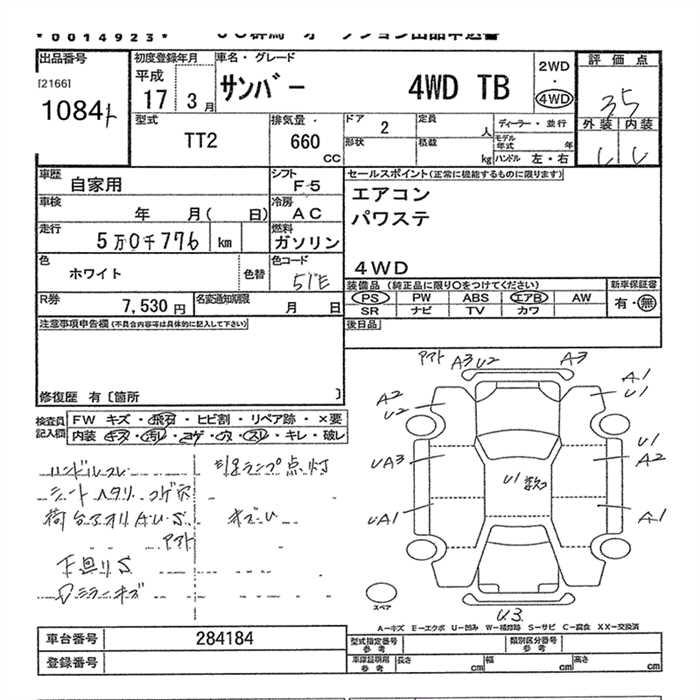 *0014923*
出品番号
[2166]
1084
初度登録年月
平成
17 3月
車名・グレード
サンバー 4WD TB
2WD
・
4WD
評価点
35
外装 内装
型式
TT2
排気量・
660
cc
ドア
2
定員
人
形状
積載
kg
ディーラー・並行
モデル年式 年
ハンドル 左・右
車歴
自家用
シフト
F5
車検
年 月( 日)
冷房
AC
走行
5万0千776 km
燃料
ガソリン
色
ホワイト
色替
色コード
51E
R券
7,530円
名変通知期限
月 日
セールスポイント(正常に機能するものに限ります)
エアコン
パワステ
4WD
装備品(純正品に限り○をつけてください)
PS PW ABS エアB AW
SR ナビ TV カワ
新車保証書
有・無
後日品
注意事項申告欄(不具合内容等は具体的に記入して下さい)
修復歴 有〔箇所 〕
検査員記入欄
FW キズ・飛石・ヒビ割・リペア跡・×要
内装 キズ・汚レ・コゲ・穴・スレ・キレ・破レ
ハンドルスレ
シートヘタリ・コゲ穴
荷台アオリA.U.S
アマト
下回りS
アマト A3 U2 A3
A2 U2 A1 U1
UA3 U1 A2
U1
UA1 A1
U3
スペア
A-キズ E-エクボ U-凹み W-補修跡 S-サビ C-腐食 XX-交換済
車台番号 284184
登録番号
型式指定番号 参考
類別区分番号 参考
車庫証明用 参考
長さ cm 幅 cm 高さ cm